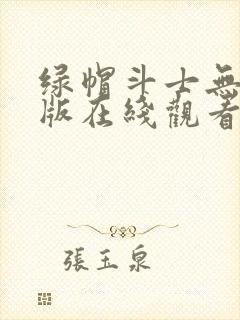 绿帽斗士無
版在綫觀看
張玉泉